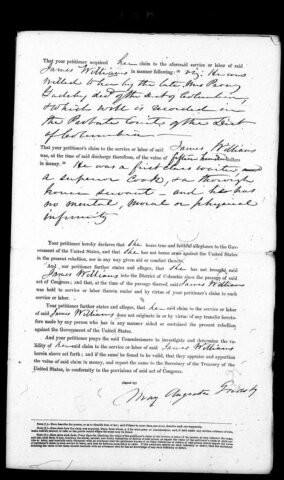 That your petitioner acquired her claim to the aforesaid service or labor of said
James Williams in manner following: viz: He was
willed to her by the late Mrs Provy
Gadsby decd of the Dist of Columbia,
& which will is recorded in
the Probate Court of the Dist
of Columbia—
That your petitioner's claim to the service or labor of said James Williams
was, at the time of said discharge therefrom, of the value of fifteen hundred dollars
in money. He was a first class waiter and
a superior cook, & a thorough
house servant — and he has
no mental, moral or physical
infirmity
Your petitioner hereby declares that she bears true and faithful allegiance to the Gov-
ernment of the United States, and that she has not borne arms against the United States
in the present rebellion, nor in any way given aid or comfort thereto.
And your petitioner further states and alleges, that she has not brought said
James Williams into the District of Columbia since the passage of said
act of Congress; and that, at the time of the passage thereof, said James Williams
was held to service or labor therein under and by virtue of your petitioner's claim to such
service or labor.
Your petitioner further states and alleges, that her said claim to the service or labor
of said James Williams does not originate in or by virtue of any transfer hereto-
fore made by any person who has in any manner aided or sustained the present rebellion
against the Government of the United States.
And your petitioner prays the said Commissioners to investigate and determine the va-
lidity of her said claim to the service or labor of said James Williams
herein above set forth; and if the same be found to be valid, that they appraise and apportion
the value of said claim in money, and report the same to the Secretary of the Treasury of the
United States, in conformity to the provisions of said act of Congress.
(Signed by)
Mary Augusta Gadsby